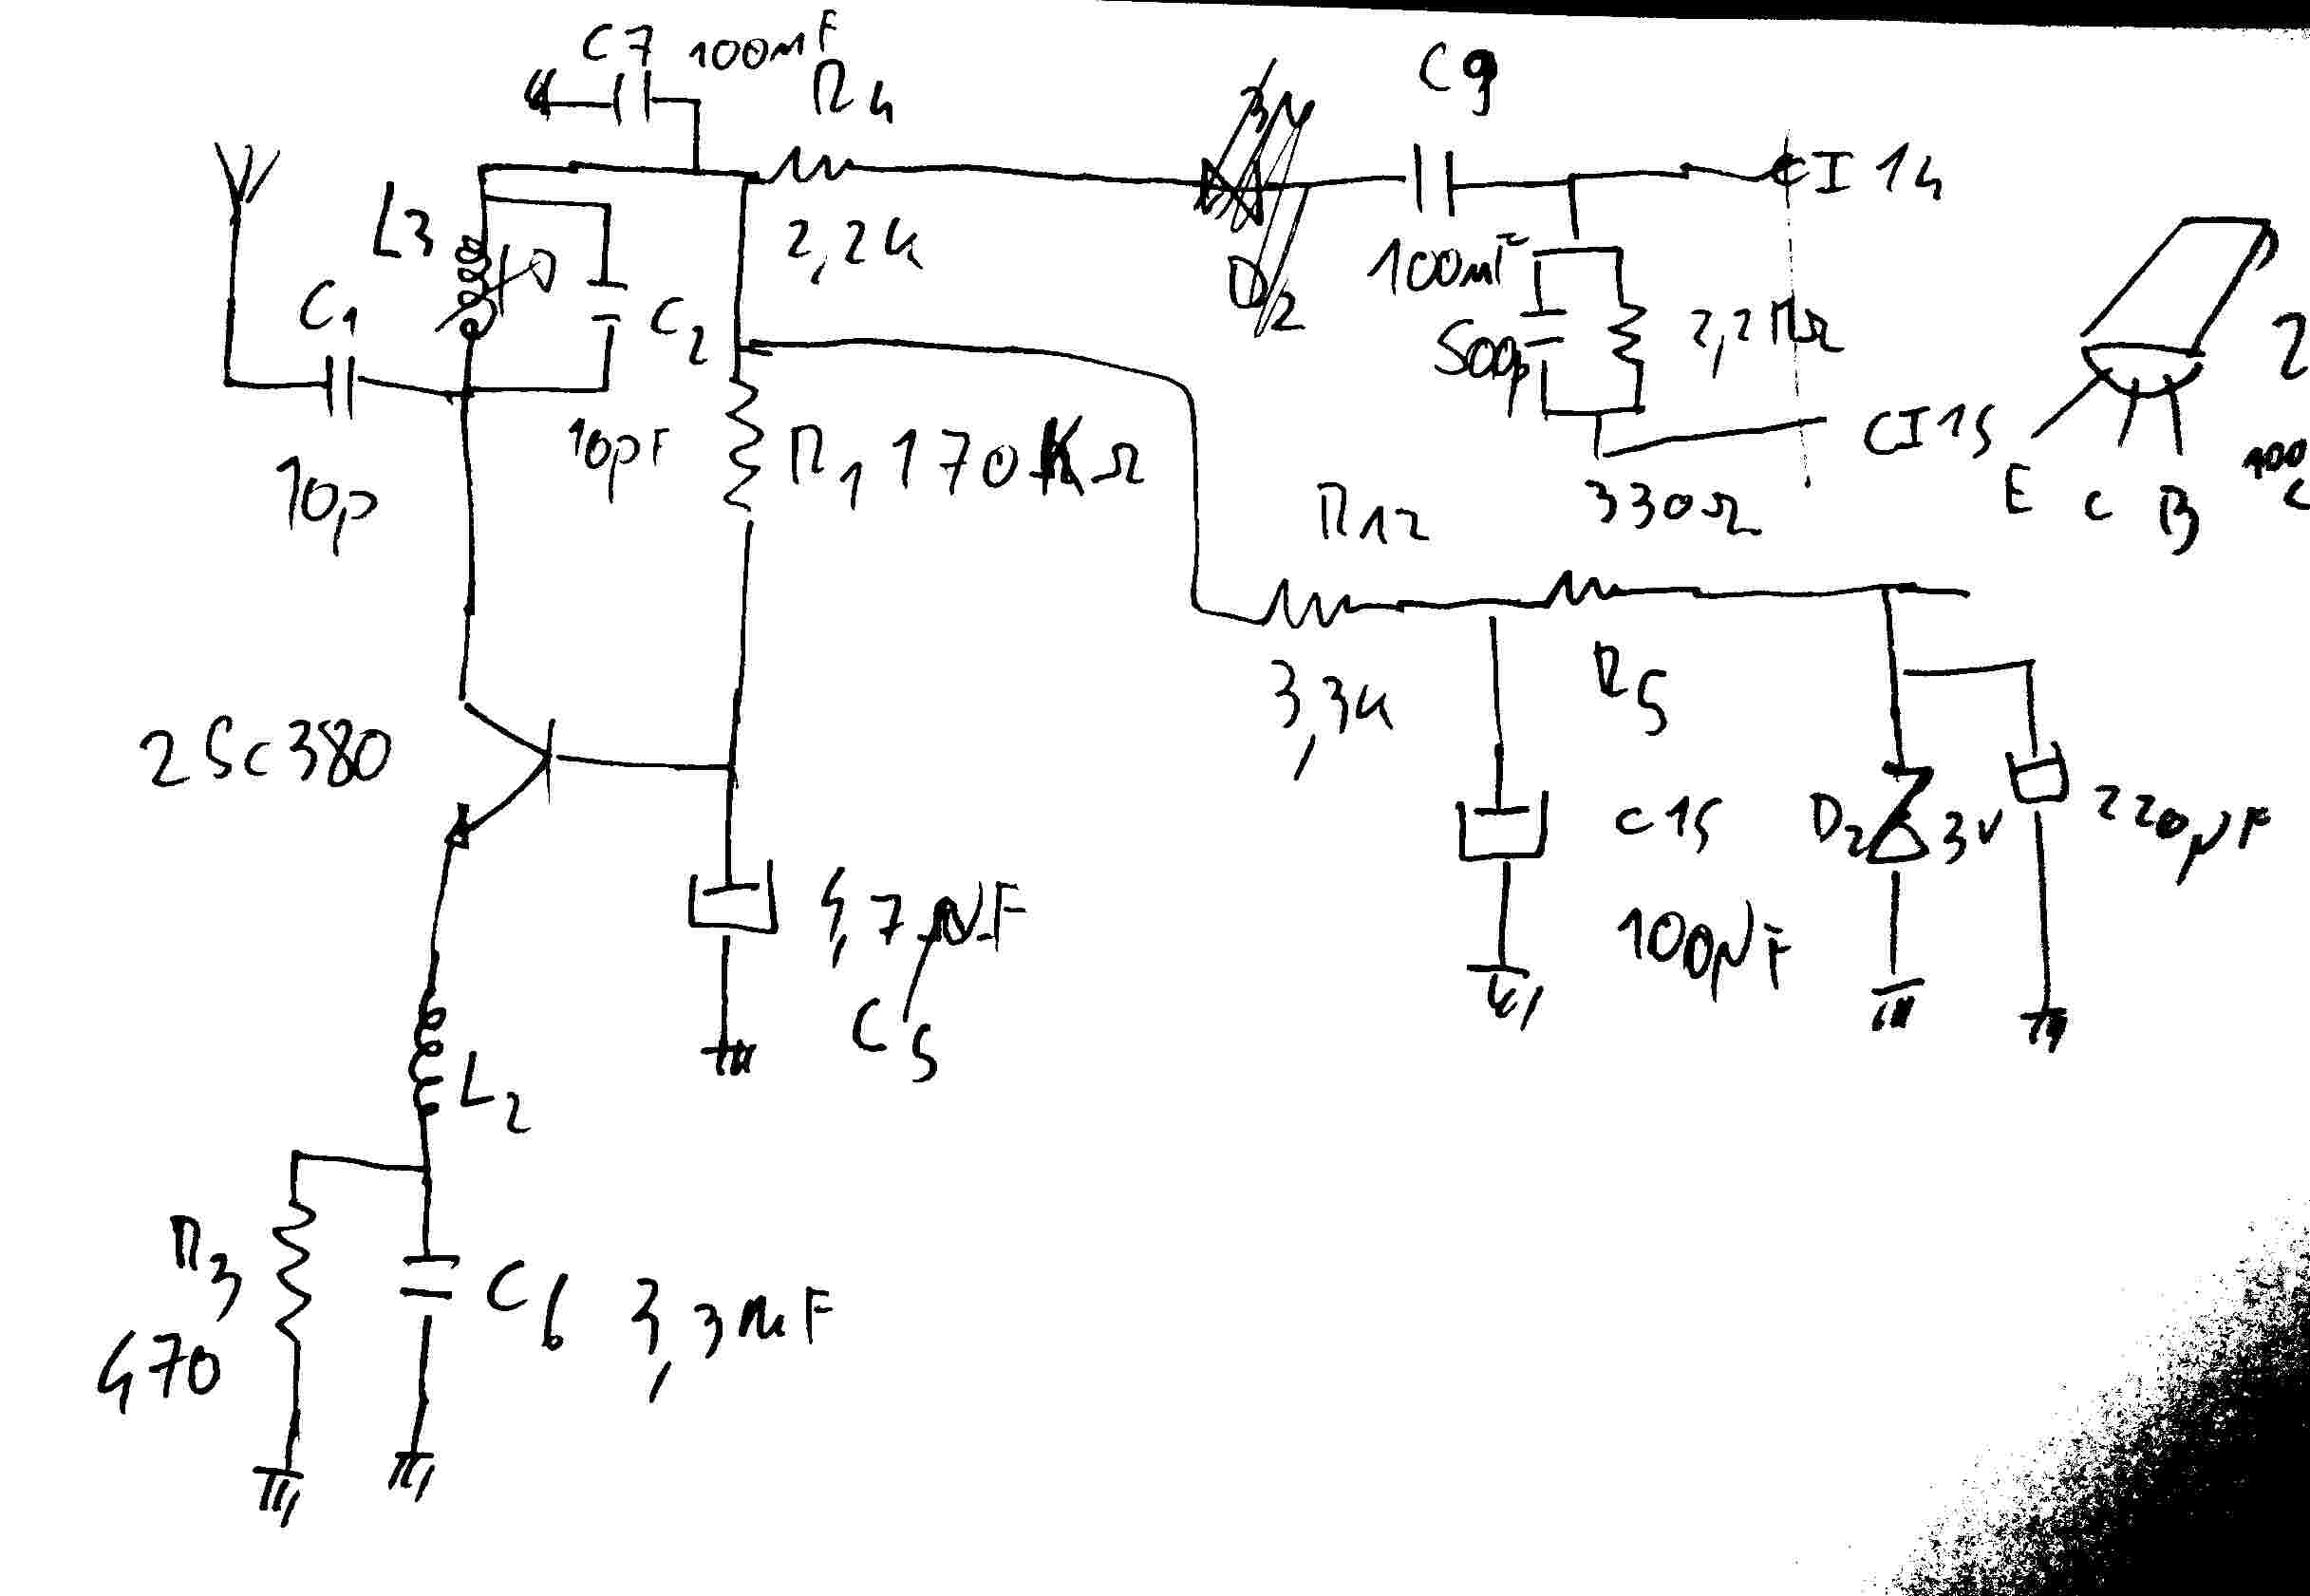 C7 100nF
R4
C9
CI 14
L3
2,2K
D2
100nF
C1
C2
500p
2,2MΩ
CI 15
10p
10pF
R1 170KΩ
E C B
2
100
R12
330Ω
3,3K
R5
2SC380
4,7µF
C15
D2 3V
220µF
C5
100µF
L2
R3
C6 3,3nF
470